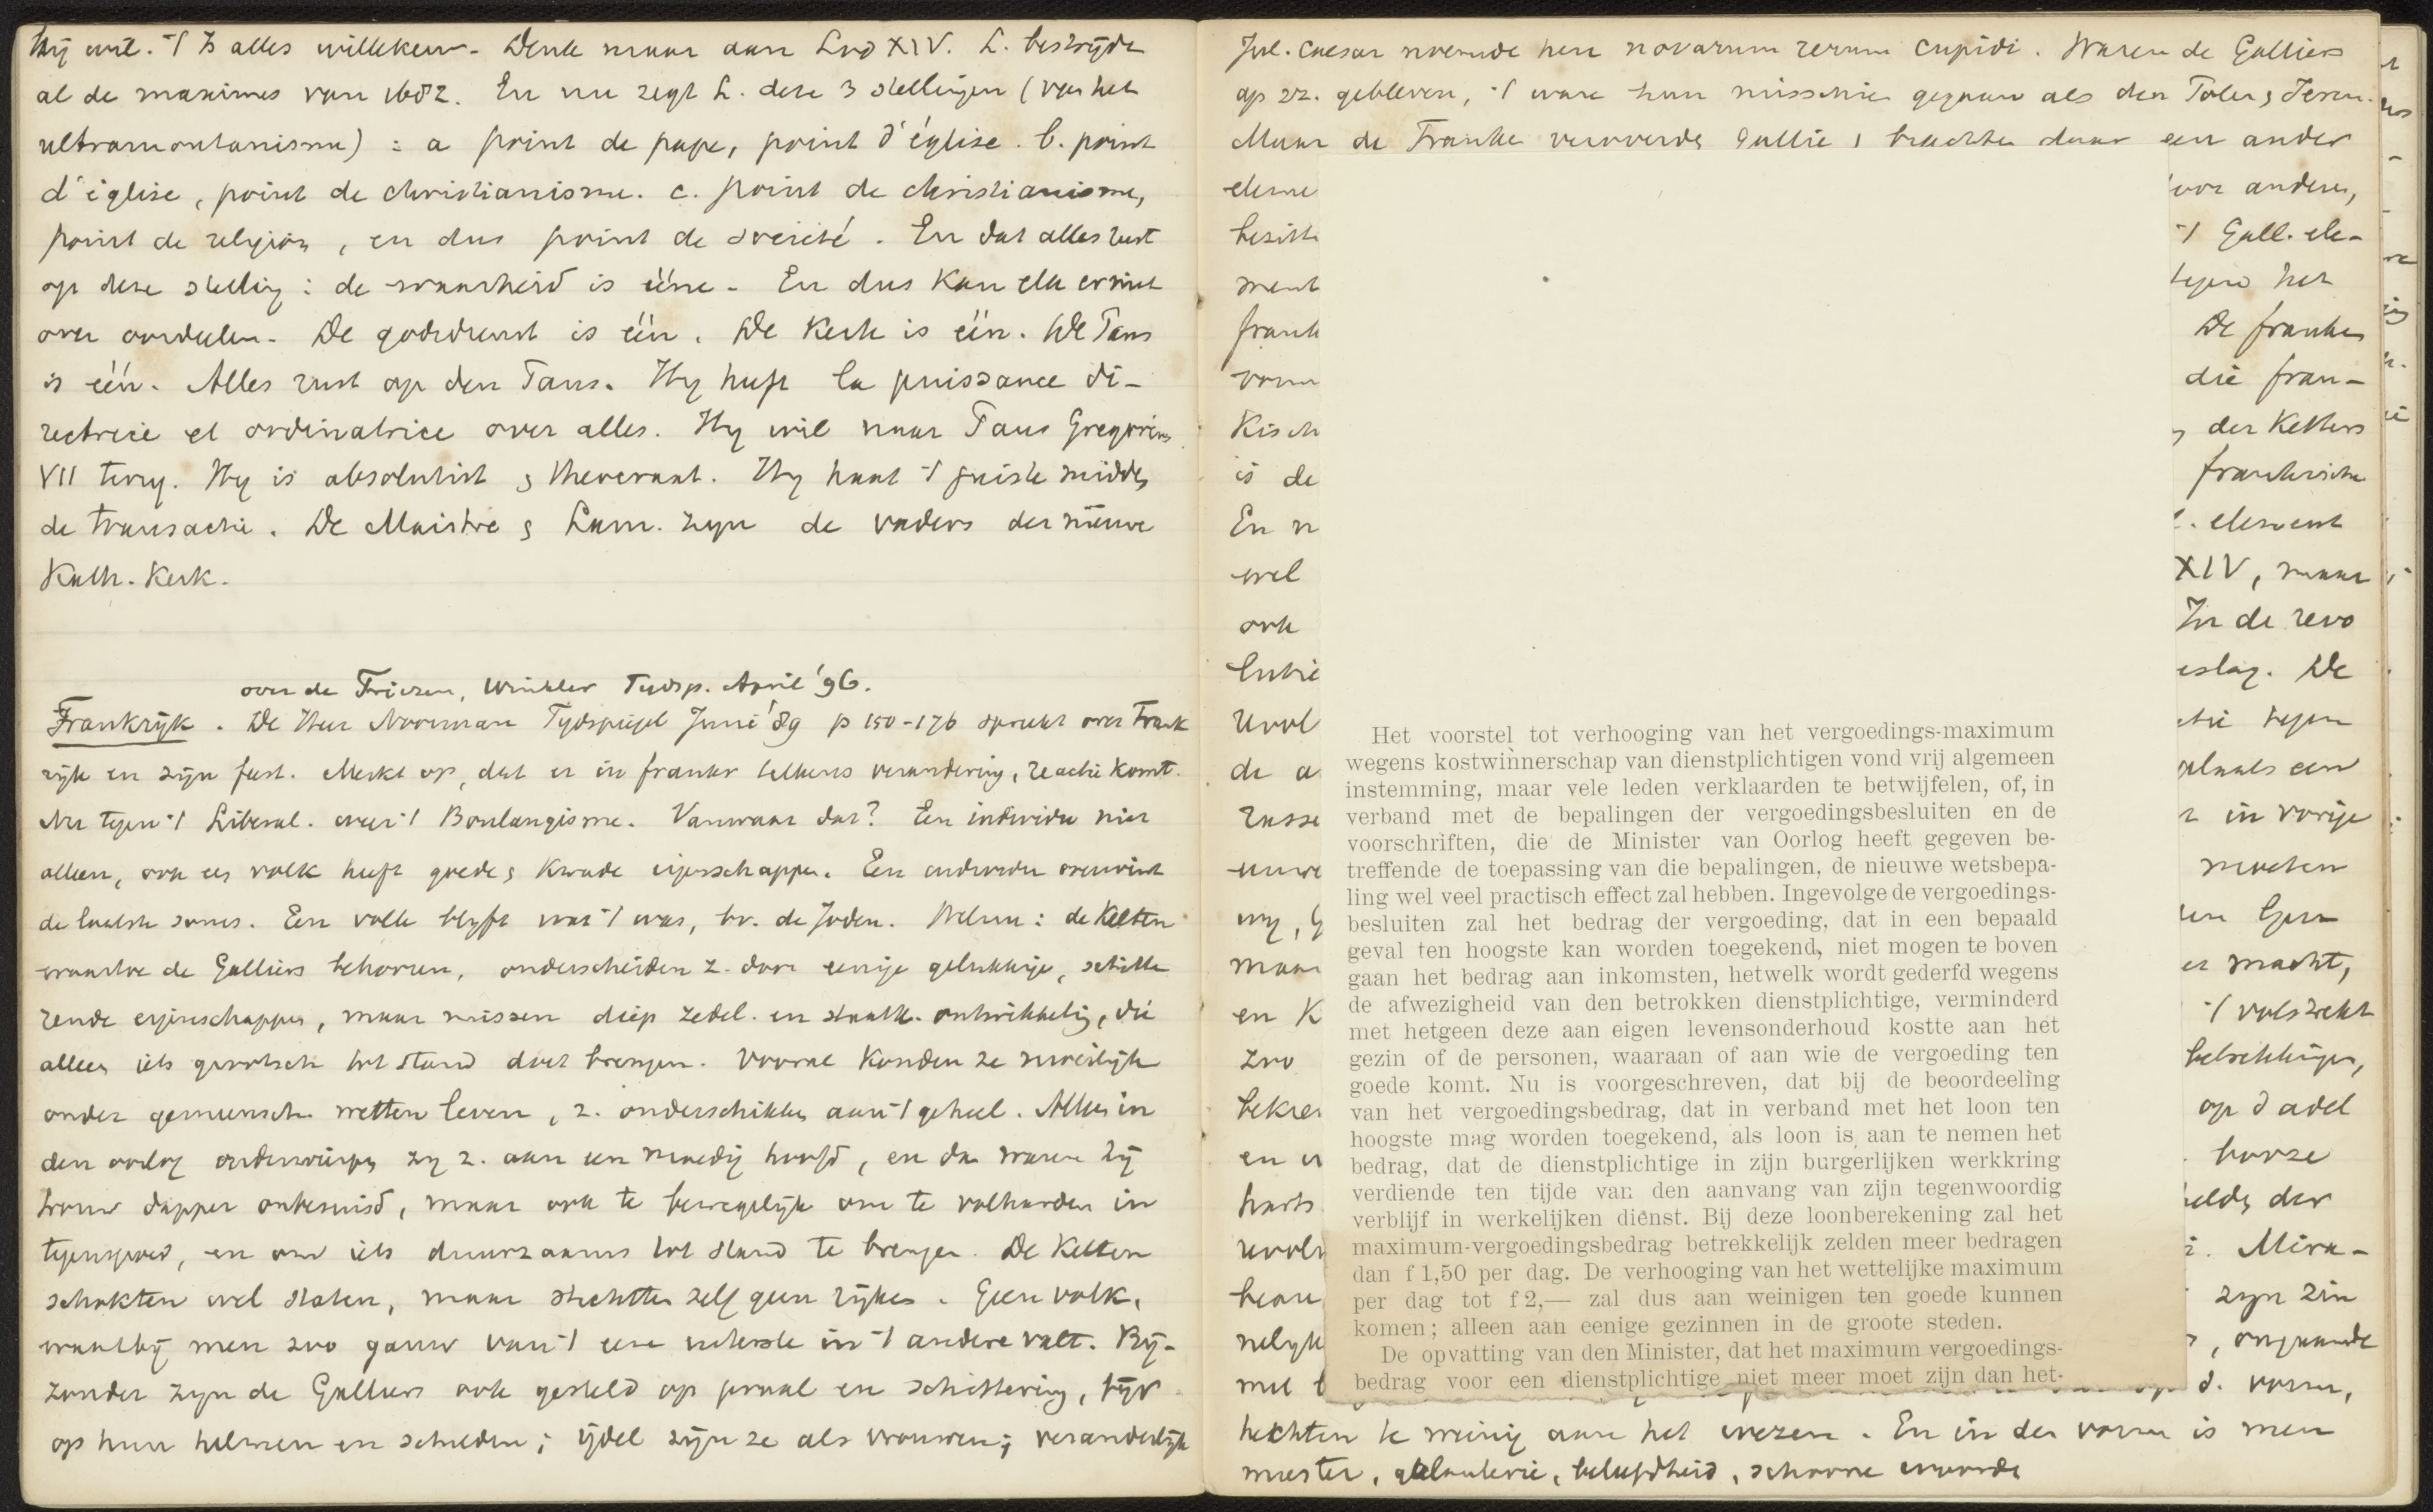 hij wil. 't Is alles willekeur. Denk maar aan Lod XIV. L. bestrijdt
al de maximes van 1682. En nu zegt L. deze 3 stellingen (van het
ultramontanisme) : a point de pape, point d'église. b. point
d'église, point de christianisme. c. point de christianisme,
point de religion, en dus point de société. En dat alles rust
op deze stelling : de waarheid is ééne. En dus kan elk er niet
over oordeelen. De godsdienst is één. De Kerk is één. De Paus
is één. Alles rust op den Paus. Hy heeft la puissance di-
rectrice et ordinatrice over alles. Hy wil naar Paus Gregorius
VII terug. Hy is absolutist & theocraat. Hy haat 't juiste midden
de transactie. De Maistre & Lam. zyn de vaders der nieuwe
Kath. Kerk.
over de Friezen, Winkler Tydsp. April '96.
Frankrijk. De Heer Noorman Tydspiegel Juni '89 p 150-176 spreekt over Frank
rijk en zijn feest. Merkt op, dat er in frankr telkens verandering, reactie komt.
Nu tegen 't Liberal. weer 't Boulangisme. Vanwaar dat? Een individu niet
alleen, ook een volk heeft goede & kwade eigenschappen. Een individu overwint
de laatste soms. Een volk blyft wat 't was, bv. de Joden. Welnu : de Kelten
waartoe de Galliërs behooren, onderscheiden z. door eenige gelukkige, schitte
rende eigenschappen, maar missen diep zedel. en staatk. ontwikkeling, die
alleen iets grootsch tot stand doet brengen. Vooral konden ze moeilijk
onder gemeensch. wetten leven, z. onderschikken aan 't geheel. Alleen in
den oorlog onderwierpen zy z. aan een moedig hoofd, en dan waren zij
trouw dapper onbesuisd, maar ook te bewegelijk om te volharden in
tegenspoed, en om iets duurzaams tot stand te brengen. De Kelten
schokten wel staten, maar stichtten zelf geen rijken. Geen volk,
waarbij men zoo gauw van 't eene uiterste in 't andere valt. Bij-
zonder zyn de Galliers ook gesteld op praal en schittering, bijv
op hun helmen en schilden; ijdel zijn ze als vrouwen; veranderlijk
Jul. Caesar noemde hen novarum rerum cupidi. Waren de Galliers
op zz. gebleven, 't ware hun misschien gegaan als den Polen & Ieren.
Maar de Franken veroverden Gallie & brachten daar een ander
eleme
voor anderen,
bezitt
't Gall. ele-
ment
tegen het
frank
De franken
vorm
die fran-
Kisch
der Kelten
is de
frankische
En n
element
wel
XIV, maar
ook
In de revo
lutie
eslag. De
Revol
tie tegen
de a
plaats een
Russe
in vorige
moeten
wy, G
maar
er macht,
en K
't volstrekt
zoo
betrekkingen,
bekre
op d adel
en u
harts
der
Mira-
zyn zin
d. vorm,
hechten te weinig aan het wezen. En in den vorm is men
meester, galanterie, beleefdheid, schoone woorden
Het voorstel tot verhooging van het vergoedings-maximum
wegens kostwinnerschap van dienstplichtigen vond vrij algemeen
instemming, maar vele leden verklaarden te betwijfelen, of, in
verband met de bepalingen der vergoedingsbesluiten en de
voorschriften, die de Minister van Oorlog heeft gegeven be-
treffende de toepassing van die bepalingen, de nieuwe wetsbepa-
ling wel veel practisch effect zal hebben. Ingevolge de vergoedings-
besluiten zal het bedrag der vergoeding, dat in een bepaald
geval ten hoogste kan worden toegekend, niet mogen te boven
gaan het bedrag aan inkomsten, hetwelk wordt gederfd wegens
de afwezigheid van den betrokken dienstplichtige, verminderd
met hetgeen deze aan eigen levensonderhoud kostte aan het
gezin of de personen, waaraan of aan wie de vergoeding ten
goede komt. Nu is voorgeschreven, dat bij de beoordeeling
van het vergoedingsbedrag, dat in verband met het loon ten
hoogste mag worden toegekend, als loon is aan te nemen het
bedrag, dat de dienstplichtige in zijn burgerlijken werkkring
verdiende ten tijde van den aanvang van zijn tegenwoordig
verblijf in werkelijken dienst. Bij deze loonberekening zal het
maximum-vergoedingsbedrag betrekkelijk zelden meer bedragen
dan f 1,50 per dag. De verhooging van het wettelijke maximum
per dag tot f 2,— zal dus aan weinigen ten goede kunnen
komen; alleen aan eenige gezinnen in de groote steden.
De opvatting van den Minister, dat het maximum vergoedings-
bedrag voor een dienstplichtige niet meer moet zijn dan het-